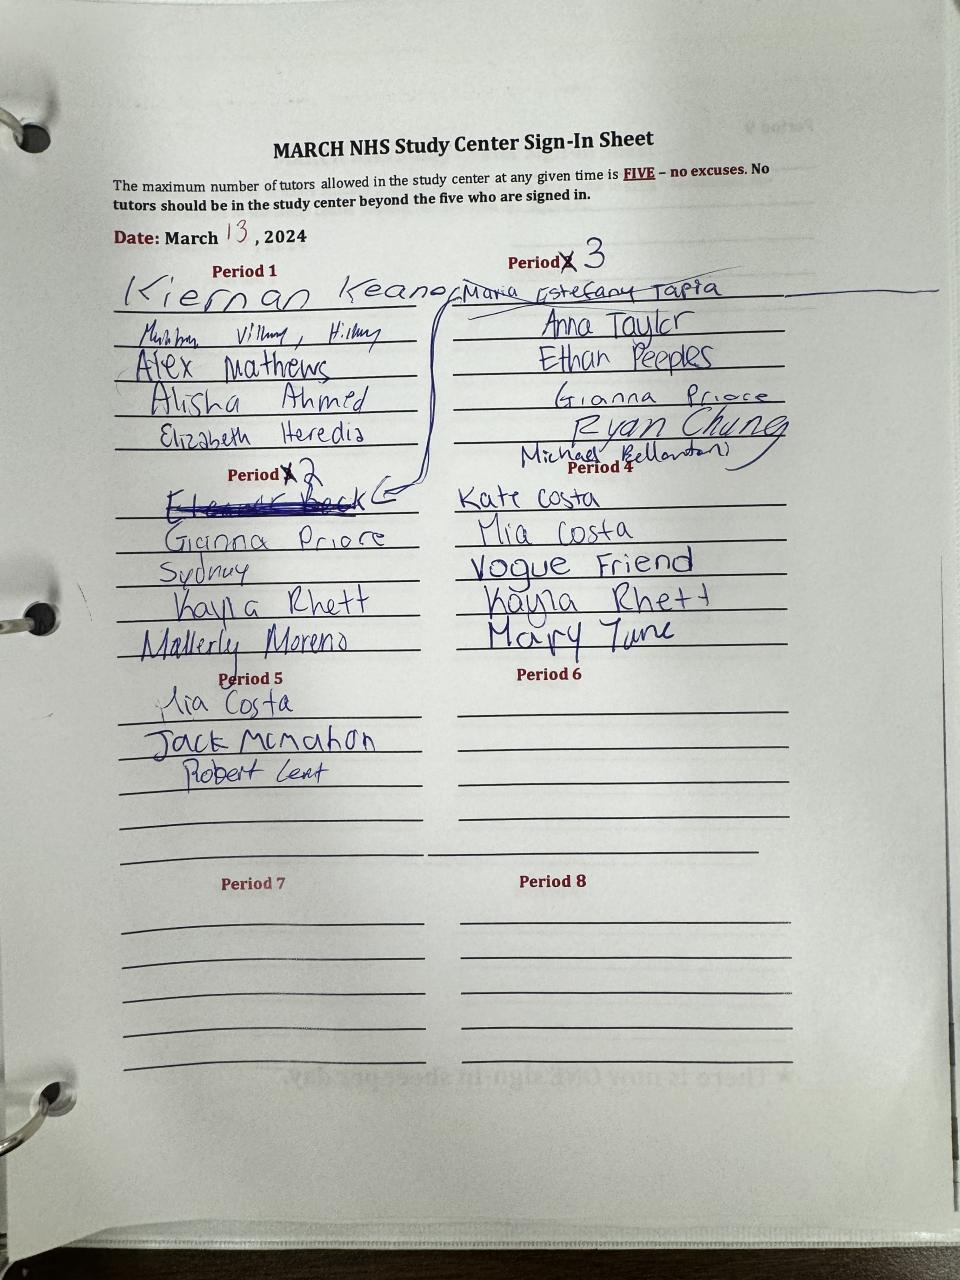 MARCH NHS Study Center Sign-In Sheet
The maximum number of tutors allowed in the study center at any given time is FIVE – no excuses. No
tutors should be in the study center beyond the five who are signed in.
Date: March 13, 2024
Period 1
Kiernan Keane
Alex Mathews
Alisha Ahmed
Elizabeth Heredia
Period 2
Gianna Priore
Sydney
Kayla Rhett
Mallerly Moreno
Period 3
Maria Estefany Tapia
Anna Taylor
Ethan Peeples
Gianna Priore
Ryan Chung
Michael
Period 4
Kate Costa
Mia Costa
Vogue Friend
Kayla Rhett
Mary
Period 5
Mia Costa
Jack McMahon
Robert Lent
Period 6
Period 7
Period 8